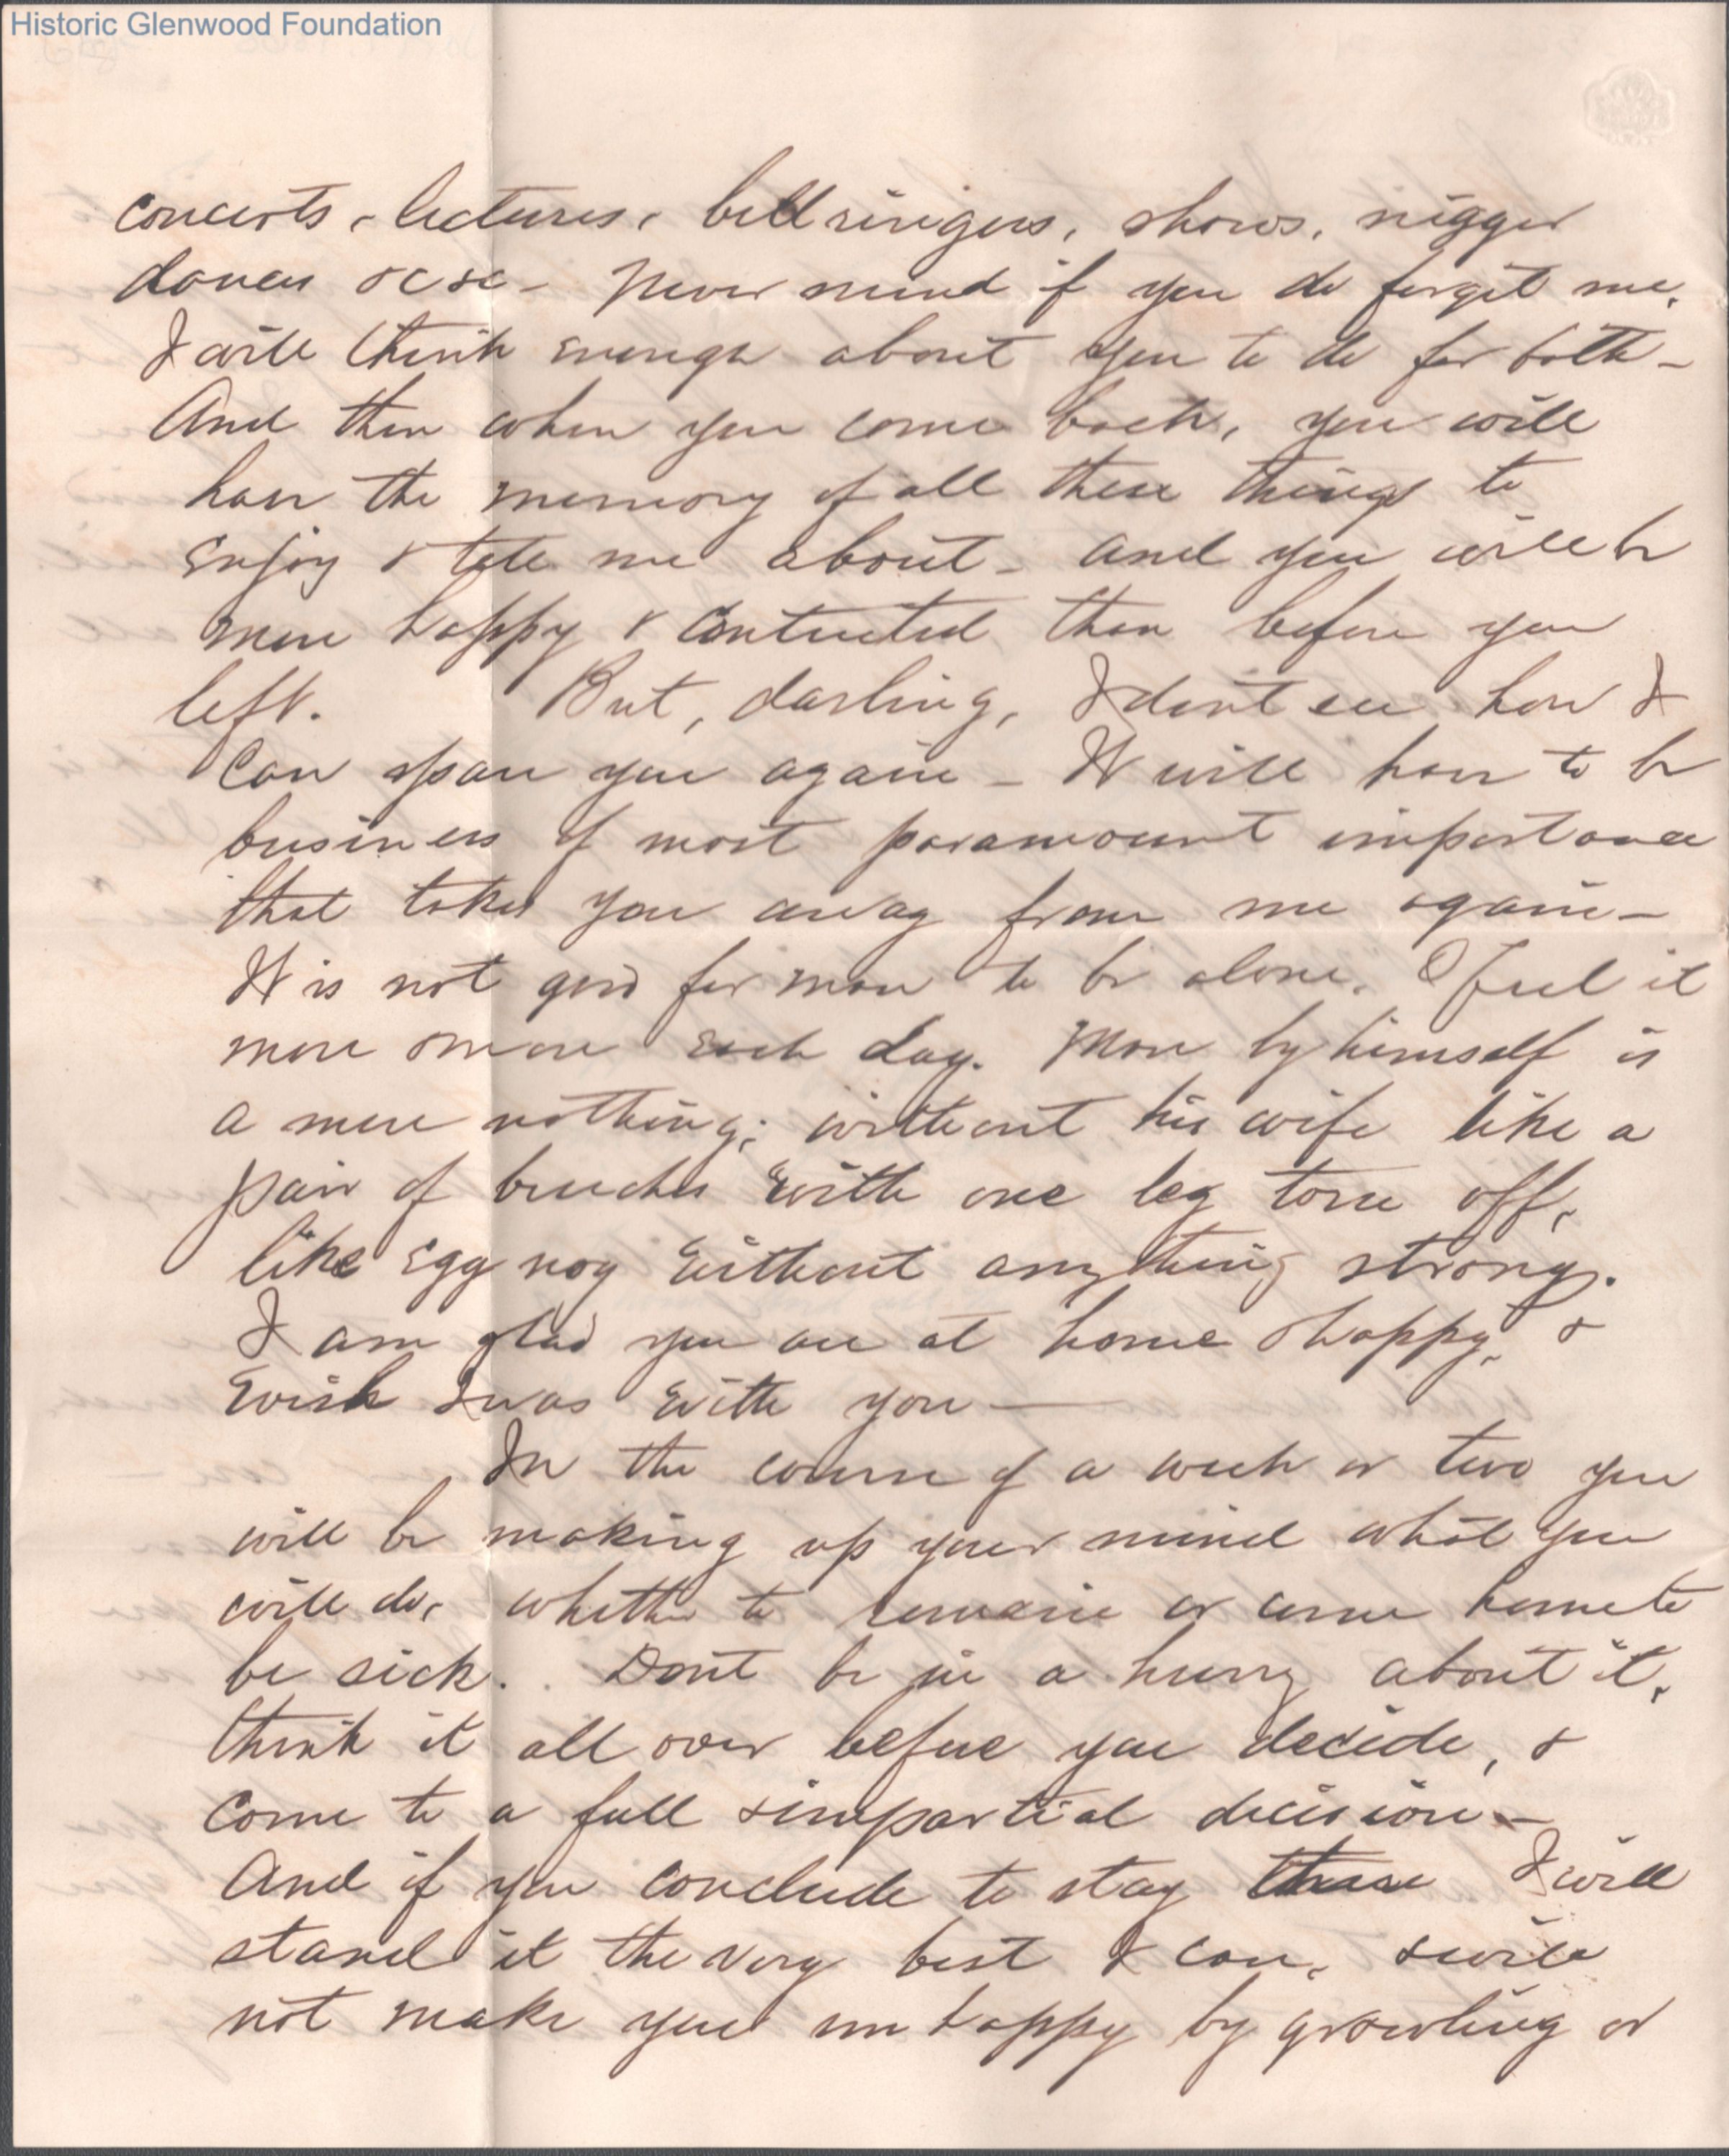 Historic Glenwood Foundation
concerts, lectures, bell ringers, shows, nigger
dances &c &c - Never mind if you do forget me,
I will think enough about you to do for both -
And then when you come back, you will
have the memory of all these things to
enjoy & tell me about - and you will be
more happy & contented than before you
left. But, darling, I dont see how I
can spare you again - It will have to be
business of most paramount importance
that takes you away from me again -
It is not good for man to be alone. I feel it
more & more each day. Man by himself is
a mere nothing; without his wife like a
pair of breeches with one leg torn off,
like egg nog without anything strong.
I am glad you are at home & happy, &
wish I was with you -
In the course of a week or two you
will be making up your mind what you
will do, whether to remain or come home to
be sick. Dont be in a hurry about it,
think it all over before you decide, &
come to a full & impartial decision -
And if you conclude to stay I will
stand it the very best I can, & will
not make you unhappy by growling or